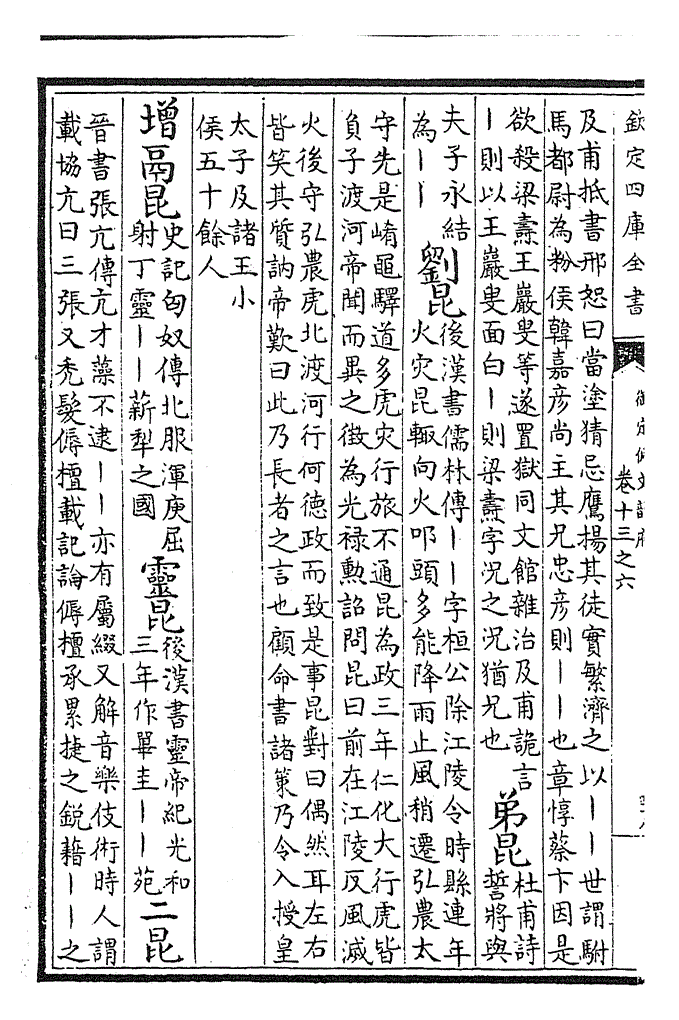 欽定四庫全書
卷十三之六
及甫抵書邢恕曰當塗猜忌鷹揚其徒實繁濟之以丨丨世謂駙
馬都尉為粉侯韓嘉彦尚主其兄忠彦則丨丨也章惇蔡卞因是
欲殺梁燾王巖叟等遂置獄同文館雜治及甫詭言
丨則以王巖叟面白丨則梁燾字況之況猶兄也
弟昆
杜甫詩
誓將與
夫子永結
為丨丨
劉昆
後漢書儒林傳丨丨字桓公除江陵令時縣連年
火灾昆輙向火叩頭多能降雨止風稍遷弘農太
守先是崤黽驛道多虎灾行旅不通昆為政三年仁化大行虎皆
負子渡河帝聞而異之徴為光禄勲詔問昆曰前在江陵反風滅
火後守弘農虎北渡河行何德政而致是事昆對曰偶然耳左右
皆笑其質訥帝歎曰此乃長者之言也顧命書諸策乃令入授皇
太子及諸王小
侯五十餘人
增鬲昆
史記匈奴傳北服渾庾屈
射丁靈丨丨薪犁之國
靈昆
後漢書靈帝紀光和
三年作單圭丨丨苑
二昆
晉書張亢傳亢才藻不逮丨丨亦有屬綴又解音樂伎術時人謂
載協亢曰三張又禿髪傉檀載記論傉檀承累捷之鋭藉丨丨之